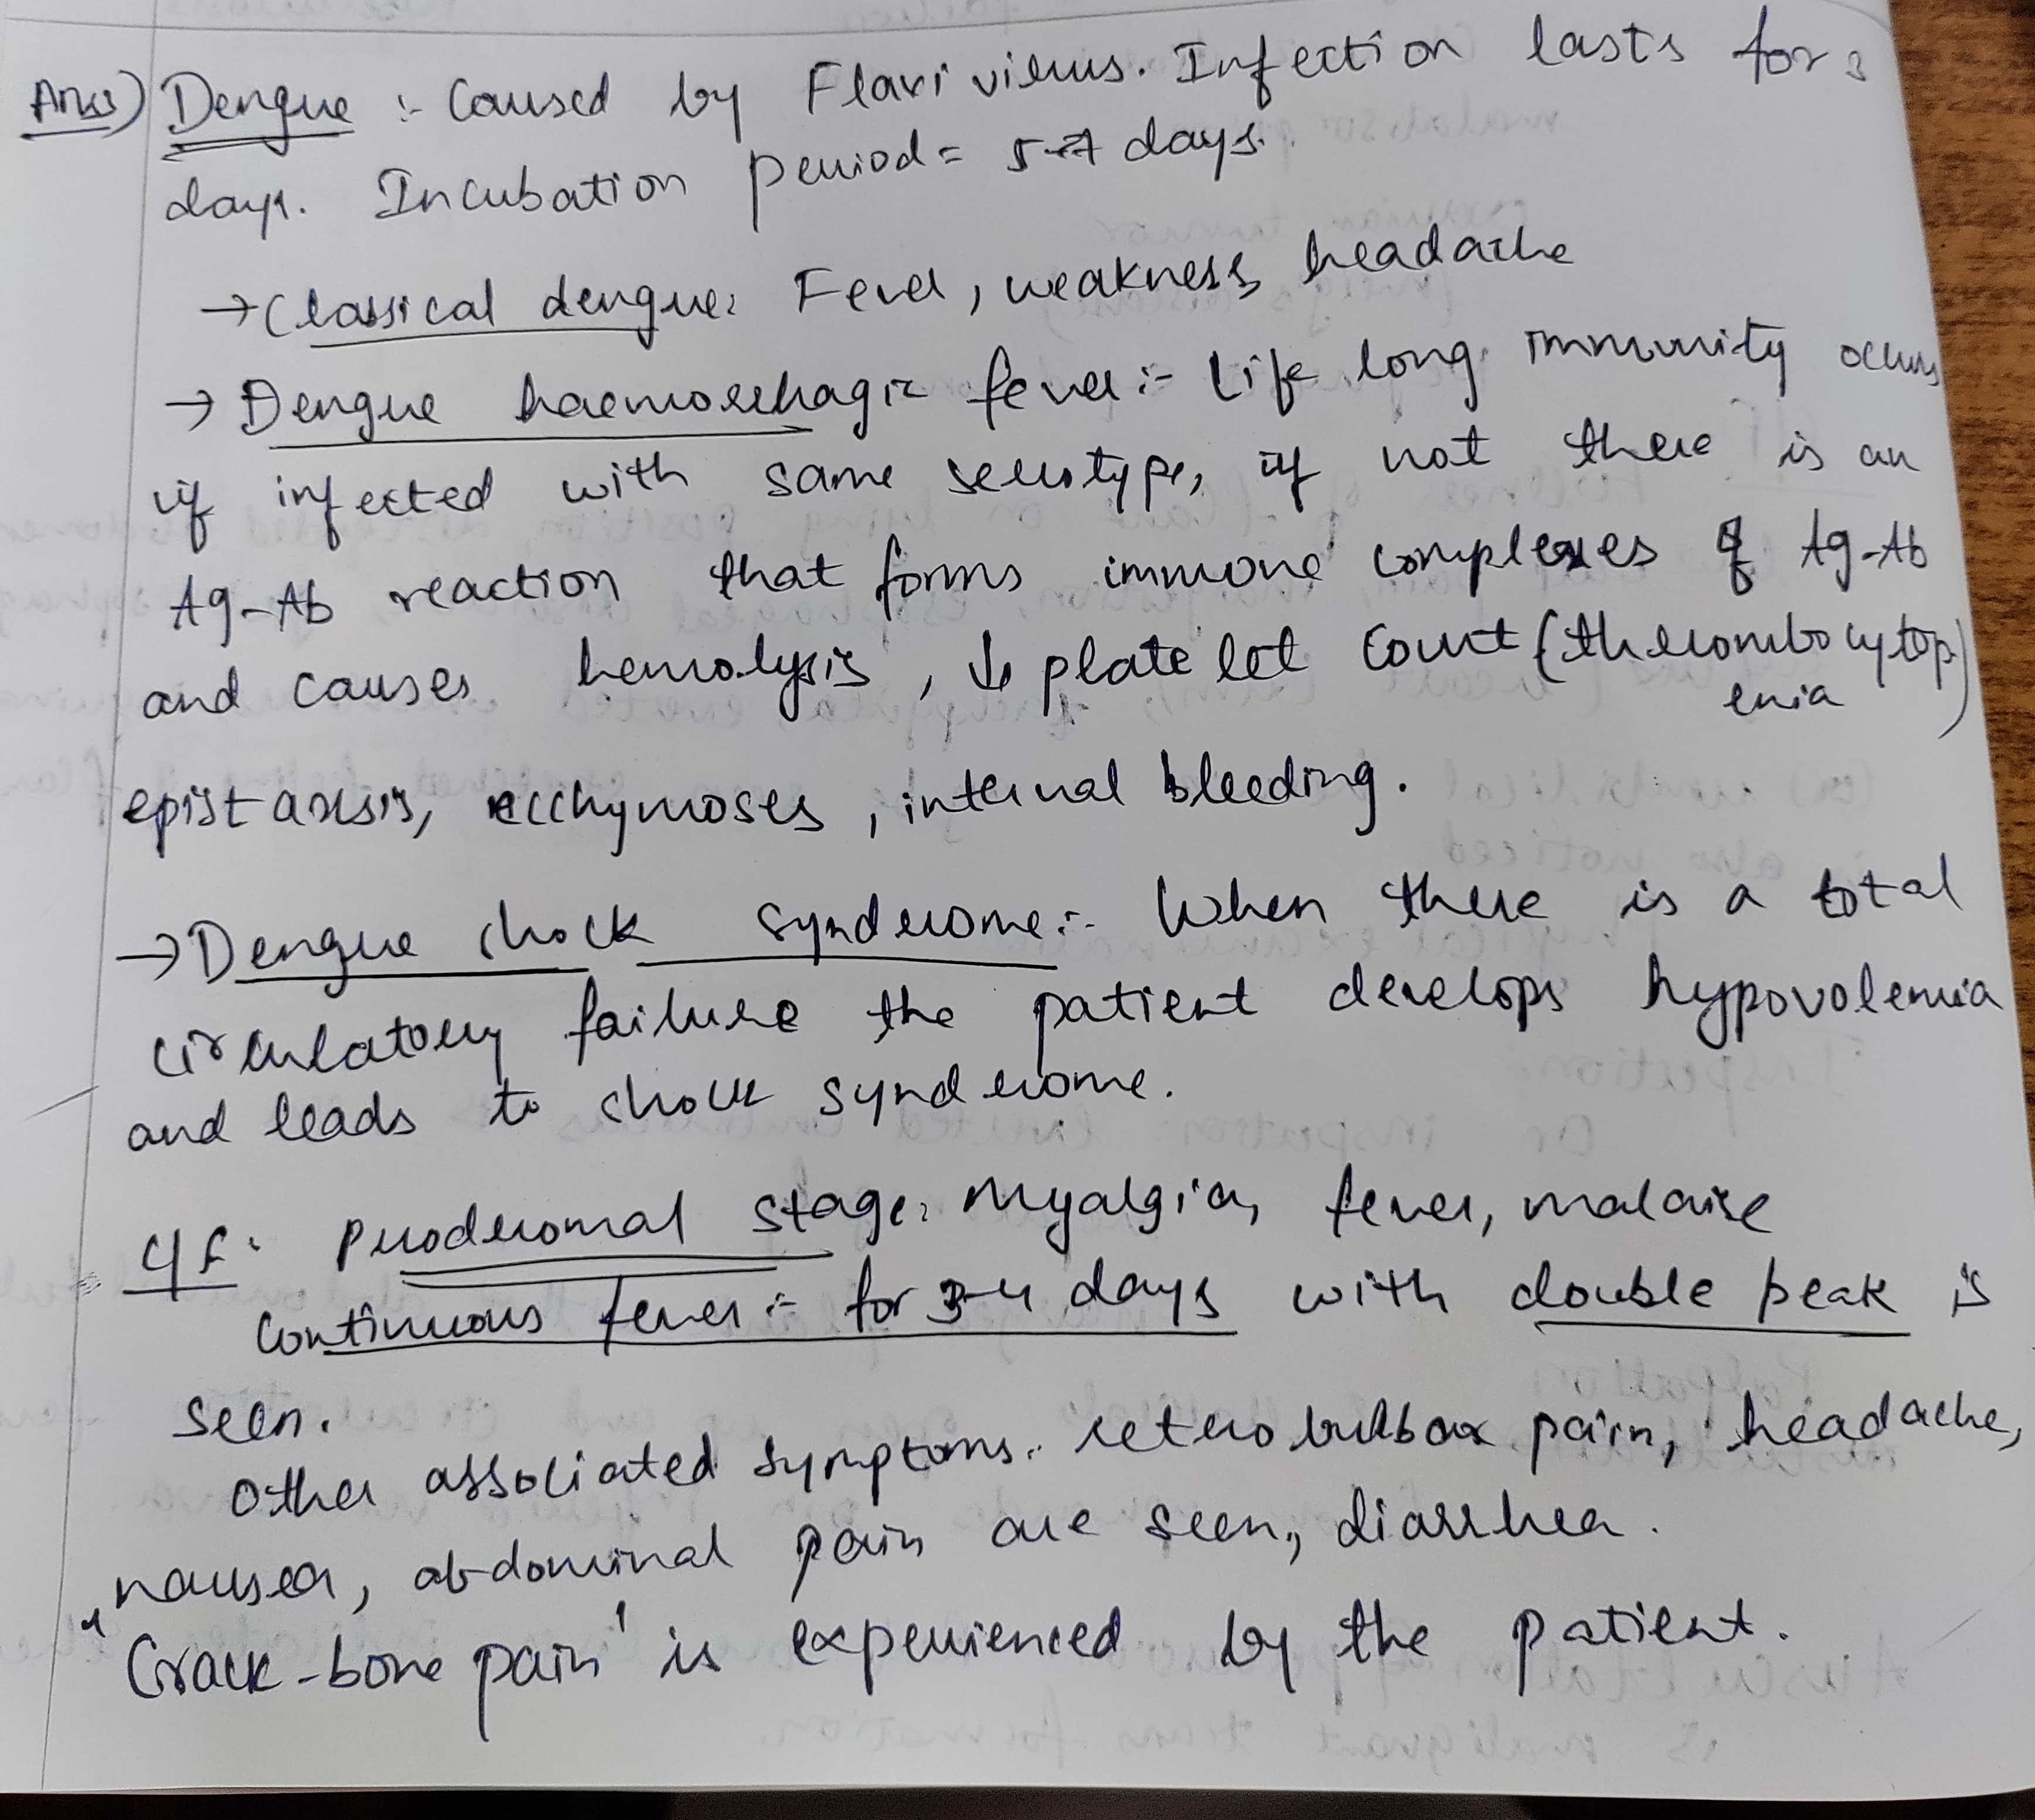 Ans) Dengue :- Caused by Flavi virus. Infection lasts for 3
days. Incubation period = 5-7 days.
→ Classical dengue: Fever, weakness, headache
→ Dengue haemorrhagic fever :- Life long immunity occurs
if infected with same serotype, if not there is an
Ag-Ab reaction that forms immune complexes of Ag-Ab
and causes hemolysis, ↓ platelet count (thrombocytop
enia)
epistaxsis, ecchymoses, internal bleeding.
→ Dengue shock syndrome :- When there is a total
circulatory failure the patient develops hypovolemia
and leads to shock syndrome.
C/F: Prodromal stage: Myalgia, fever, malaise
Continuous fever :- for 3-4 days with double peak is
seen.
Other associated symptoms: retrobulbar pain, headache,
nausea, abdominal pain are seen, diarrhea.
"Crack-bone pain" is experienced by the patient.